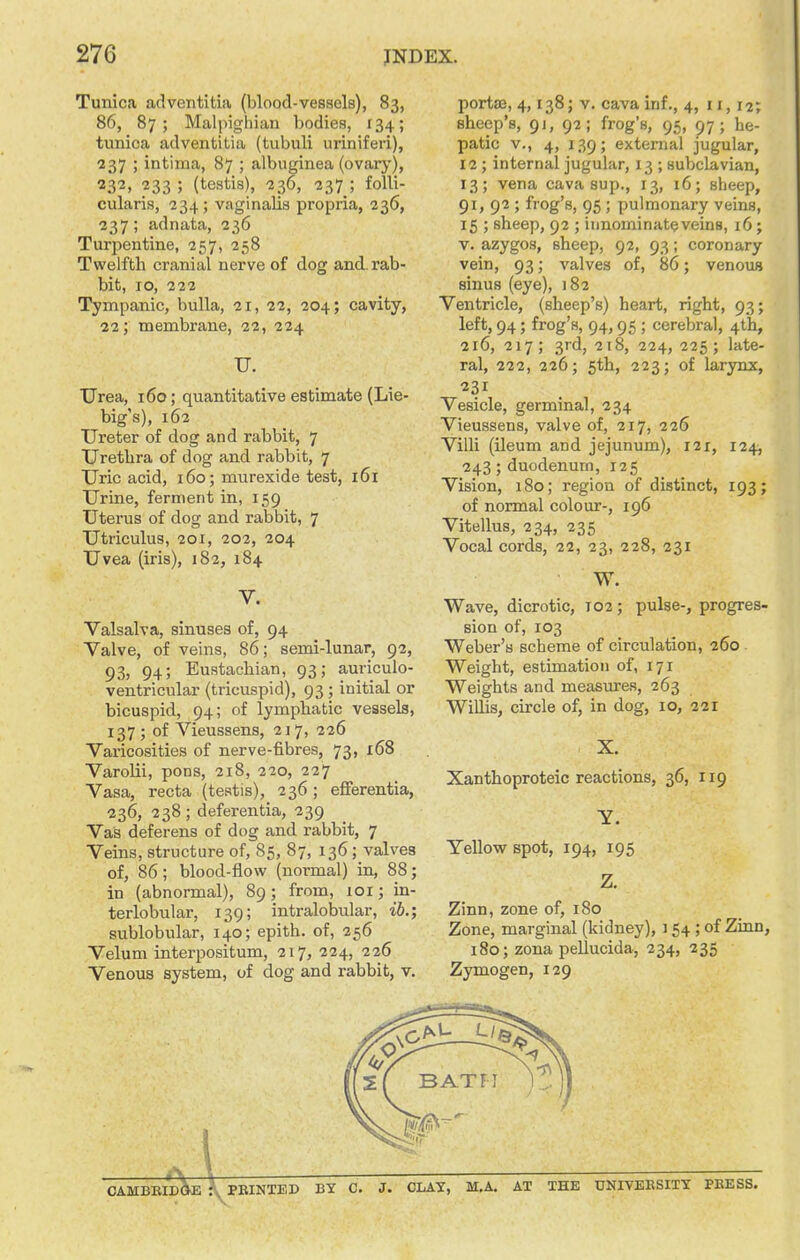 276 INDEX.
Tunica adventitia (blood-vessels), 83,
86, 87 ; Malpighian bodies, 134;
tunica adventitia (tubuli uriniferi),
237 ; intima, 87 ; albuginea (ovary),
232, 233 ; (testis), 236, 237 ; folli-
cularis, 234 ; vaginalis propria, 236,
237 ; adnata, 236
Turpentine, 257, 258
Twelfth cranial nerve of dog and rab-
bit, 10, 222
Tympanic, bulla, 21, 22, 204; cavity,
22; membrane, 22, 224
U.
Urea, 160; quantitative estimate (Lie-
big's), 162
Ureter of dog and rabbit, 7
Urethra of dog and rabbit, 7
Uric acid, 160; murexide test, 161
Urine, ferment in, 159
Uterus of dog and rabbit, 7
Utriculus, 201, 202, 204
Uvea (iris), 182, 184
V.
Valsalva, sinuses of, 94
Valve, of veins, 86; semi-lunar, 92,
93, 94; Eustachian, 93; auriculo-
ventricular (tricuspid), 93 ; initial or
bicuspid, 94; of lymphatic vessels,
137 ; of Vieussens, 217, 226
Varicosities of nerve-fibres, 73, 168
Varolii, pons, 218, 220, 227
Vasa, recta (testis), 236 ; efferentia,
236, 238 ; deferentia, 239
Vas deferens of dog and rabbit, 7
Veins, structure of, 85, 87, 136 ; valves
of, 86 ; blood-flow (normal) in, 88;
in (abnormal), 89 ; from, 101; in-
terlobular, 139; intralobular, ib.;
sublobular, 140; epith. of, 256
Velum interpositum, 217, 224, 226
Venous system, of dog and rabbit, v.
portæ, 4, 138; v. cava inf., 4, 11, 12;
sheep's, 91, 92 ; frog's, 95, 97; he-
patic v., 4, 139; external jugular,
12 ; internal jugular, 13 ; subclavian,
13; vena cava sup., 13, 16; sheep,
91, 92 ; frog's, 95 ; pulmonary veins,
15 ; sheep, 92 ; innominate veins, 16 ;
v. azygos, sheep, 92, 93; coronary
vein, 93; valves of, 86; venous
sinus (eye), 182
Ventricle, (sheep's) heart, right, 93;
left, 94; frog's, 94, 95 ; cerebral, 4th,
216, 217; 3rd, 218, 224, 225; late-
ral, 222, 226; 5th, 223; of larynx,
231
Vesicle, germinal, 234
Vieussens, valve of, 217, 226
Villi (ileum and jejunum), 121, 124,
243 ; duodenum, 125
Vision, 180; region of distinct, 193;
of normal colour-, 196
Vitellus, 234, 235
Vocal cords, 22, 23, 228, 231
W.
Wave, dicrotic, 102; pulse-, progres-
sion of, 103
Weber's scheme of circulation, 260
Weight, estimation of, 171
Weights and measures, 263
Willis, circle of, in dog, 10, 221
X.
Xanthoproteic reactions, 36, 119
Y.
Yellow spot, 194, 195
Z.
Zinn, zone of, 180
Zone, marginal (kidney), 154 ; of Zinn,
180; zona pellucida, 234, 235
Zymogen, 129
MEDICAL LIBRARY
BATH
CAMBRIDGE : PRINTED BY C. J. CLAY, M.A. AT THE UNIVERSITY PRESS.